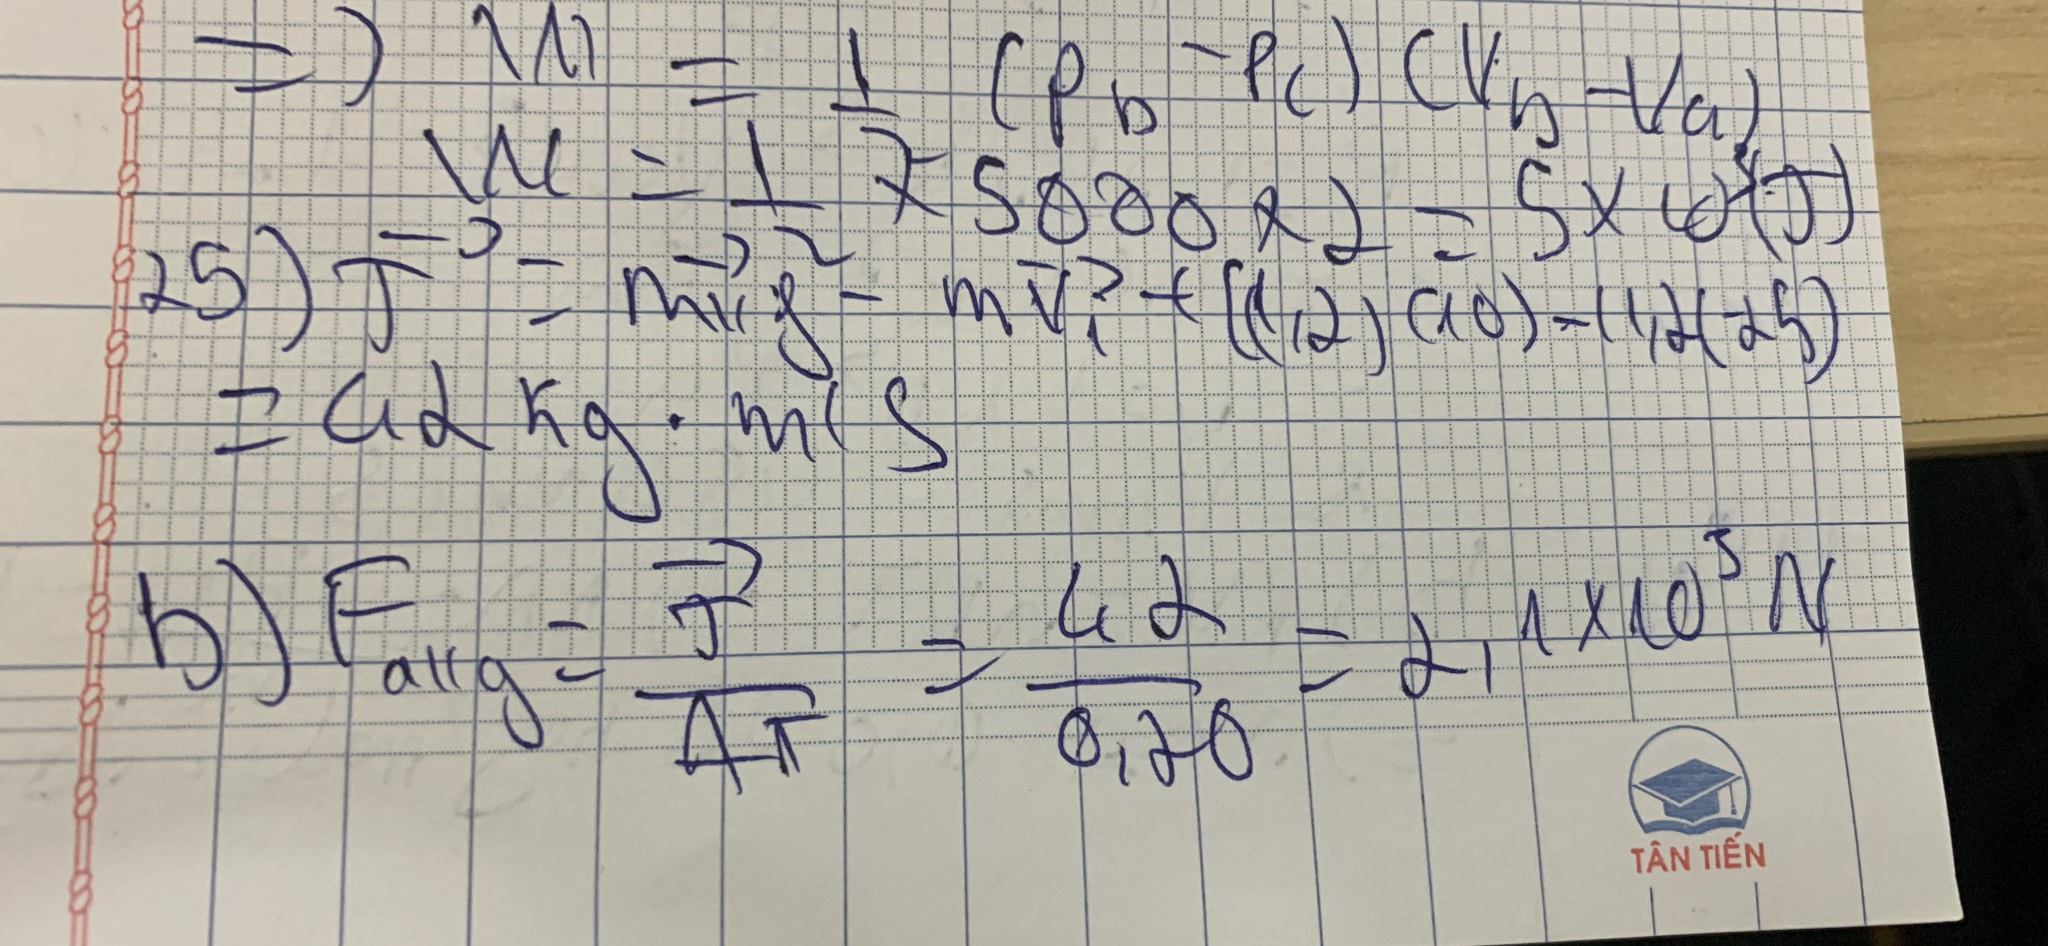 => W = 1 (Pb - Pc) (Vb - Va)
W = 1 x 5000 x 2 = 5 x 10³ (J)
25) J⃗ = mv⃗f - mv⃗i + [(1,2) (10) - (1,2(-25)
= 42 kg . m/s
b) Favg = J⃗/ΔT = 42/0,20 = 2,1 x 10³ N
TÂN TIẾN